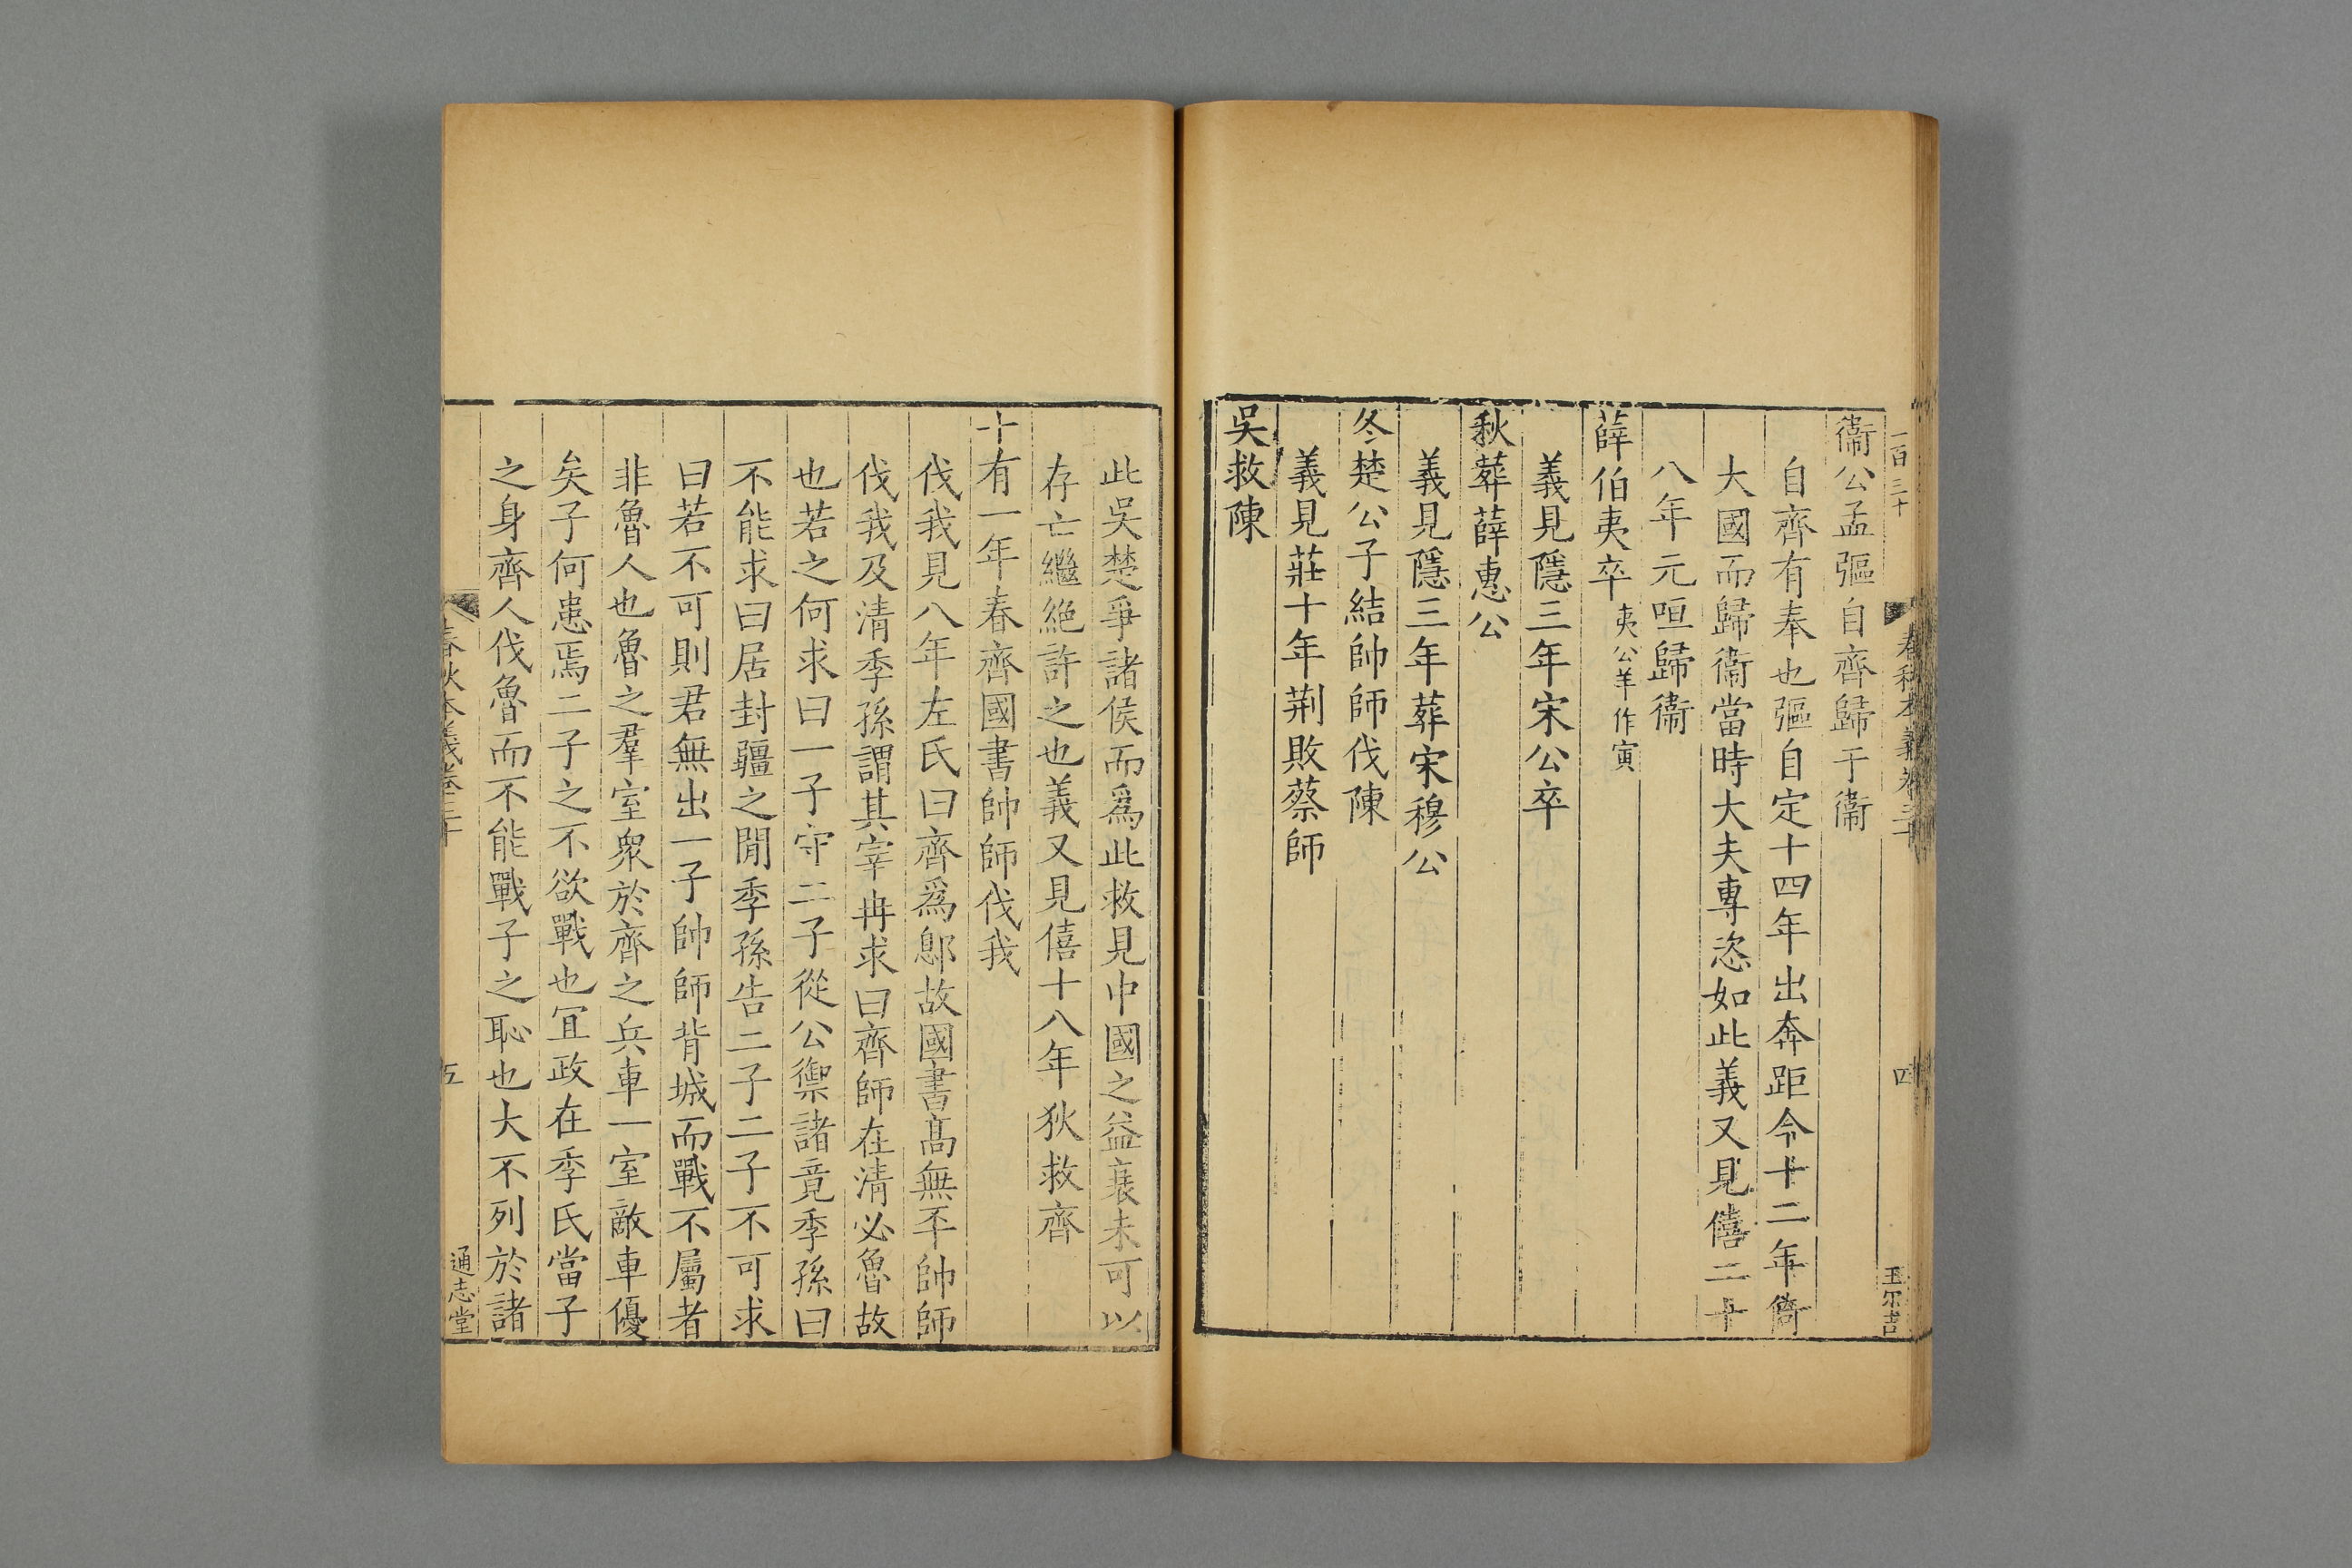 一百三十
春秋本義卷三十
四
玉尒吉
衞公孟彄自齊歸于衞
自齊有奉也彄自定十四年出奔距今十二年倚
大國而歸衞當時大夫專恣如此義又見僖二十
八年元咺歸衞
薛伯夷卒夷公羊作寅
義見隱三年宋公卒
秋葬薛惠公
義見隱三年葬宋穆公
冬楚公子結帥師伐陳
義見莊十年荆敗蔡師
吳救陳
此吳楚爭諸侯而爲此救見中國之益衰未可以
存亡繼絶許之也義又見僖十八年狄救齊
十有一年春齊國書帥師伐我
伐我見八年左氏曰齊爲鄎故國書髙無㔻帥師
伐我及清季孫謂其宰冉求曰齊師在清必魯故
也若之何求曰一子守二子從公禦諸竟季孫曰
不能求曰居封疆之閒季孫告二子二子不可求
曰若不可則君無出一子帥師背城而戰不屬者
非魯人也魯之羣室衆於齊之兵車一室敵車優
矣子何患焉二子之不欲戰也宜政在季氏當子
之身齊人伐魯而不能戰子之恥也大不列於諸
春秋本義卷三十
五
通志堂